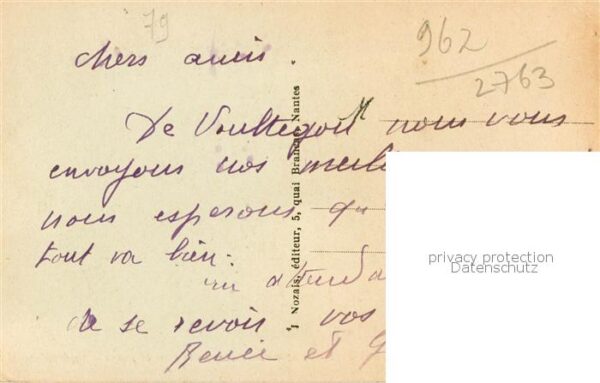 79
962
2763
chers amis.
De Voultegon nous vous
envoyons nos meil
nous esperons qu
tout va bien.
en attenda
de se revoir vos
Renée et G
J Nozais, éditeur, 5, quai Brancas, Nantes
privacy protection
Datenschutz